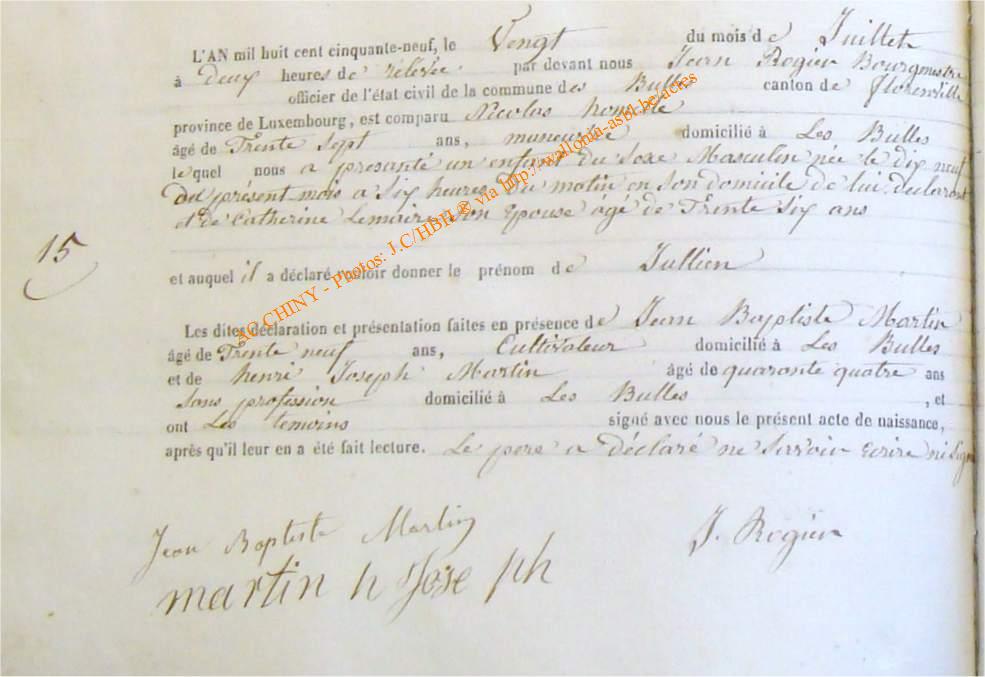 L'AN mil huit cent cinquante-neuf, le Vengt du mois de Juillet
à deux heures de rélevée par devant nous Jean Rogier Bourgmestre
officier de l'état civil de la commune des Bulles canton de florenville
province de Luxembourg, est comparu Nicolas
âgé de Trente sept ans, maneuvre domicilié à Les Bulles
le quel nous a presanté un enfant du Sexe Masculin née le dix neuf
du présent mois a six heures du matin en son domicile de lui declarant
et de Catherine Lemaire son Epouse âgé de Trente Six ans
15
et auquel il a déclaré vouloir donner le prénom de Jullien
Les dites déclaration et présentation faites en présence de Jean Baptiste Martin
âgé de Trente neuf ans, Cultivateur domicilié à Les Bulles
et de henri Joseph Martin âgé de quarante quatre ans
Sans profession domicilié à Les Bulles , et
ont Les temoins signé avec nous le présent acte de naissance,
après qu'il leur en a été fait lecture. Le pere a déclaré ne Savoir Ecrire ni Sign
Jean Baptiste Martin J. Rogier
martin h Jose ph
AC CHINY - Photos: J.C/HBH ® via http://wallonia-asbl.be.actes